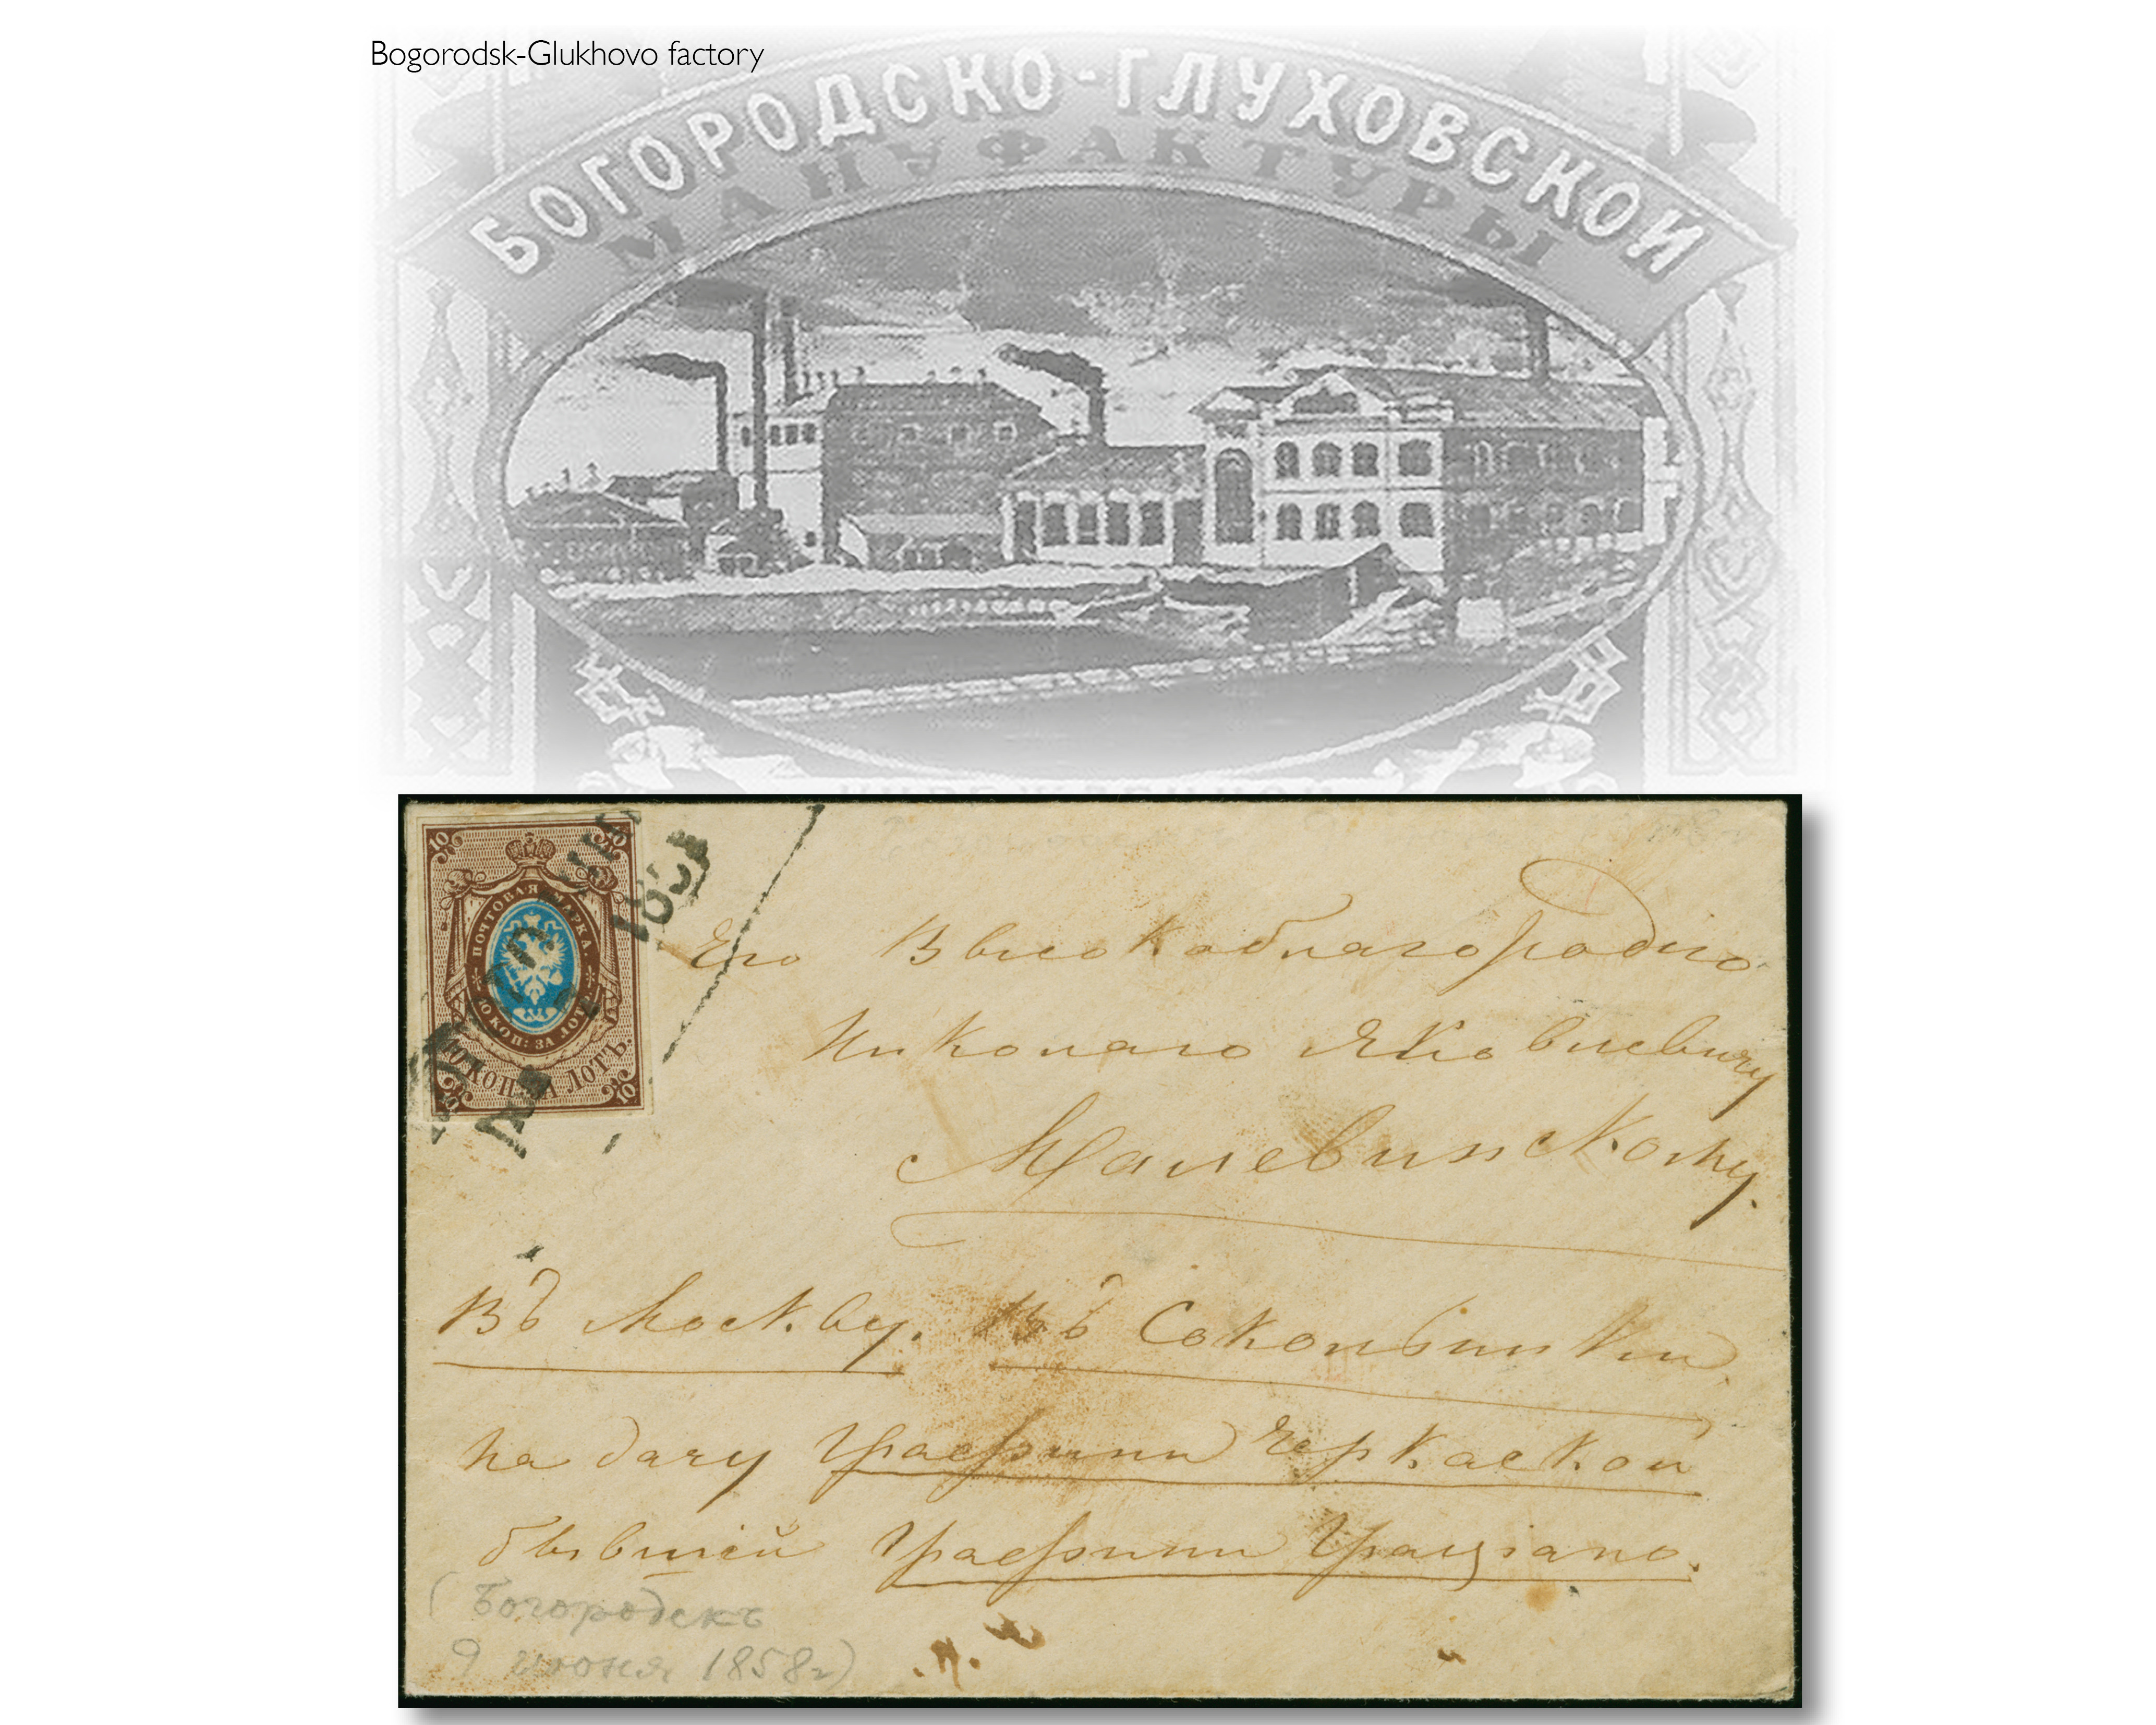 Bogorodsk-Glukhovo factory
БОГОРОДСКО-ГЛУХОВСКОЙ
МАНУФАКТУРЫ
10 10
ПОЧТОВАЯ МАРКА
10 КОП: ЗА ЛОТЪ
10 КОП. ЗА ЛОТЪ.
10
185
Его Высокоблагородию
Николаю Яковлевичу
Малевинскому.
Въ Москву. Въ Сокольники
на дачу Графини Черкаской
бывшей Графини Грациано.
(Богородскъ
9 июня 1858г)